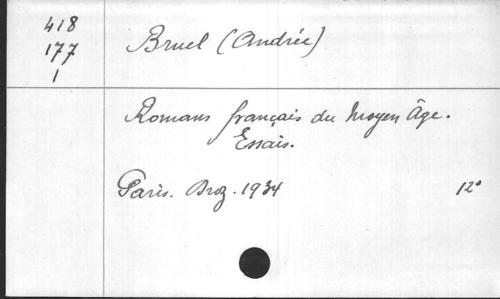 418
177
1
Bruel (Andrée)
Romans français du Moyen Âge.
Essais.
Paris. Broz. 1934 12°